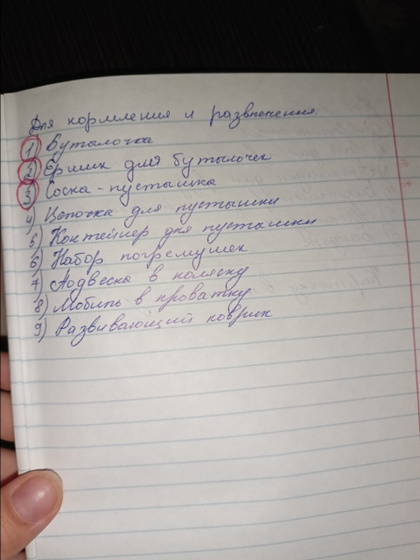 Для кормления и развлечения.
1) Бутылочка
2) Ёршик для бутылочек
3) Соска-пустышка
4) Цепочка для пустышки
5) Контейнер для пустышки
6) Набор погремушек
7) Подвеска в коляску
8) Мобиль в кроватку
9) Развивающий коврик